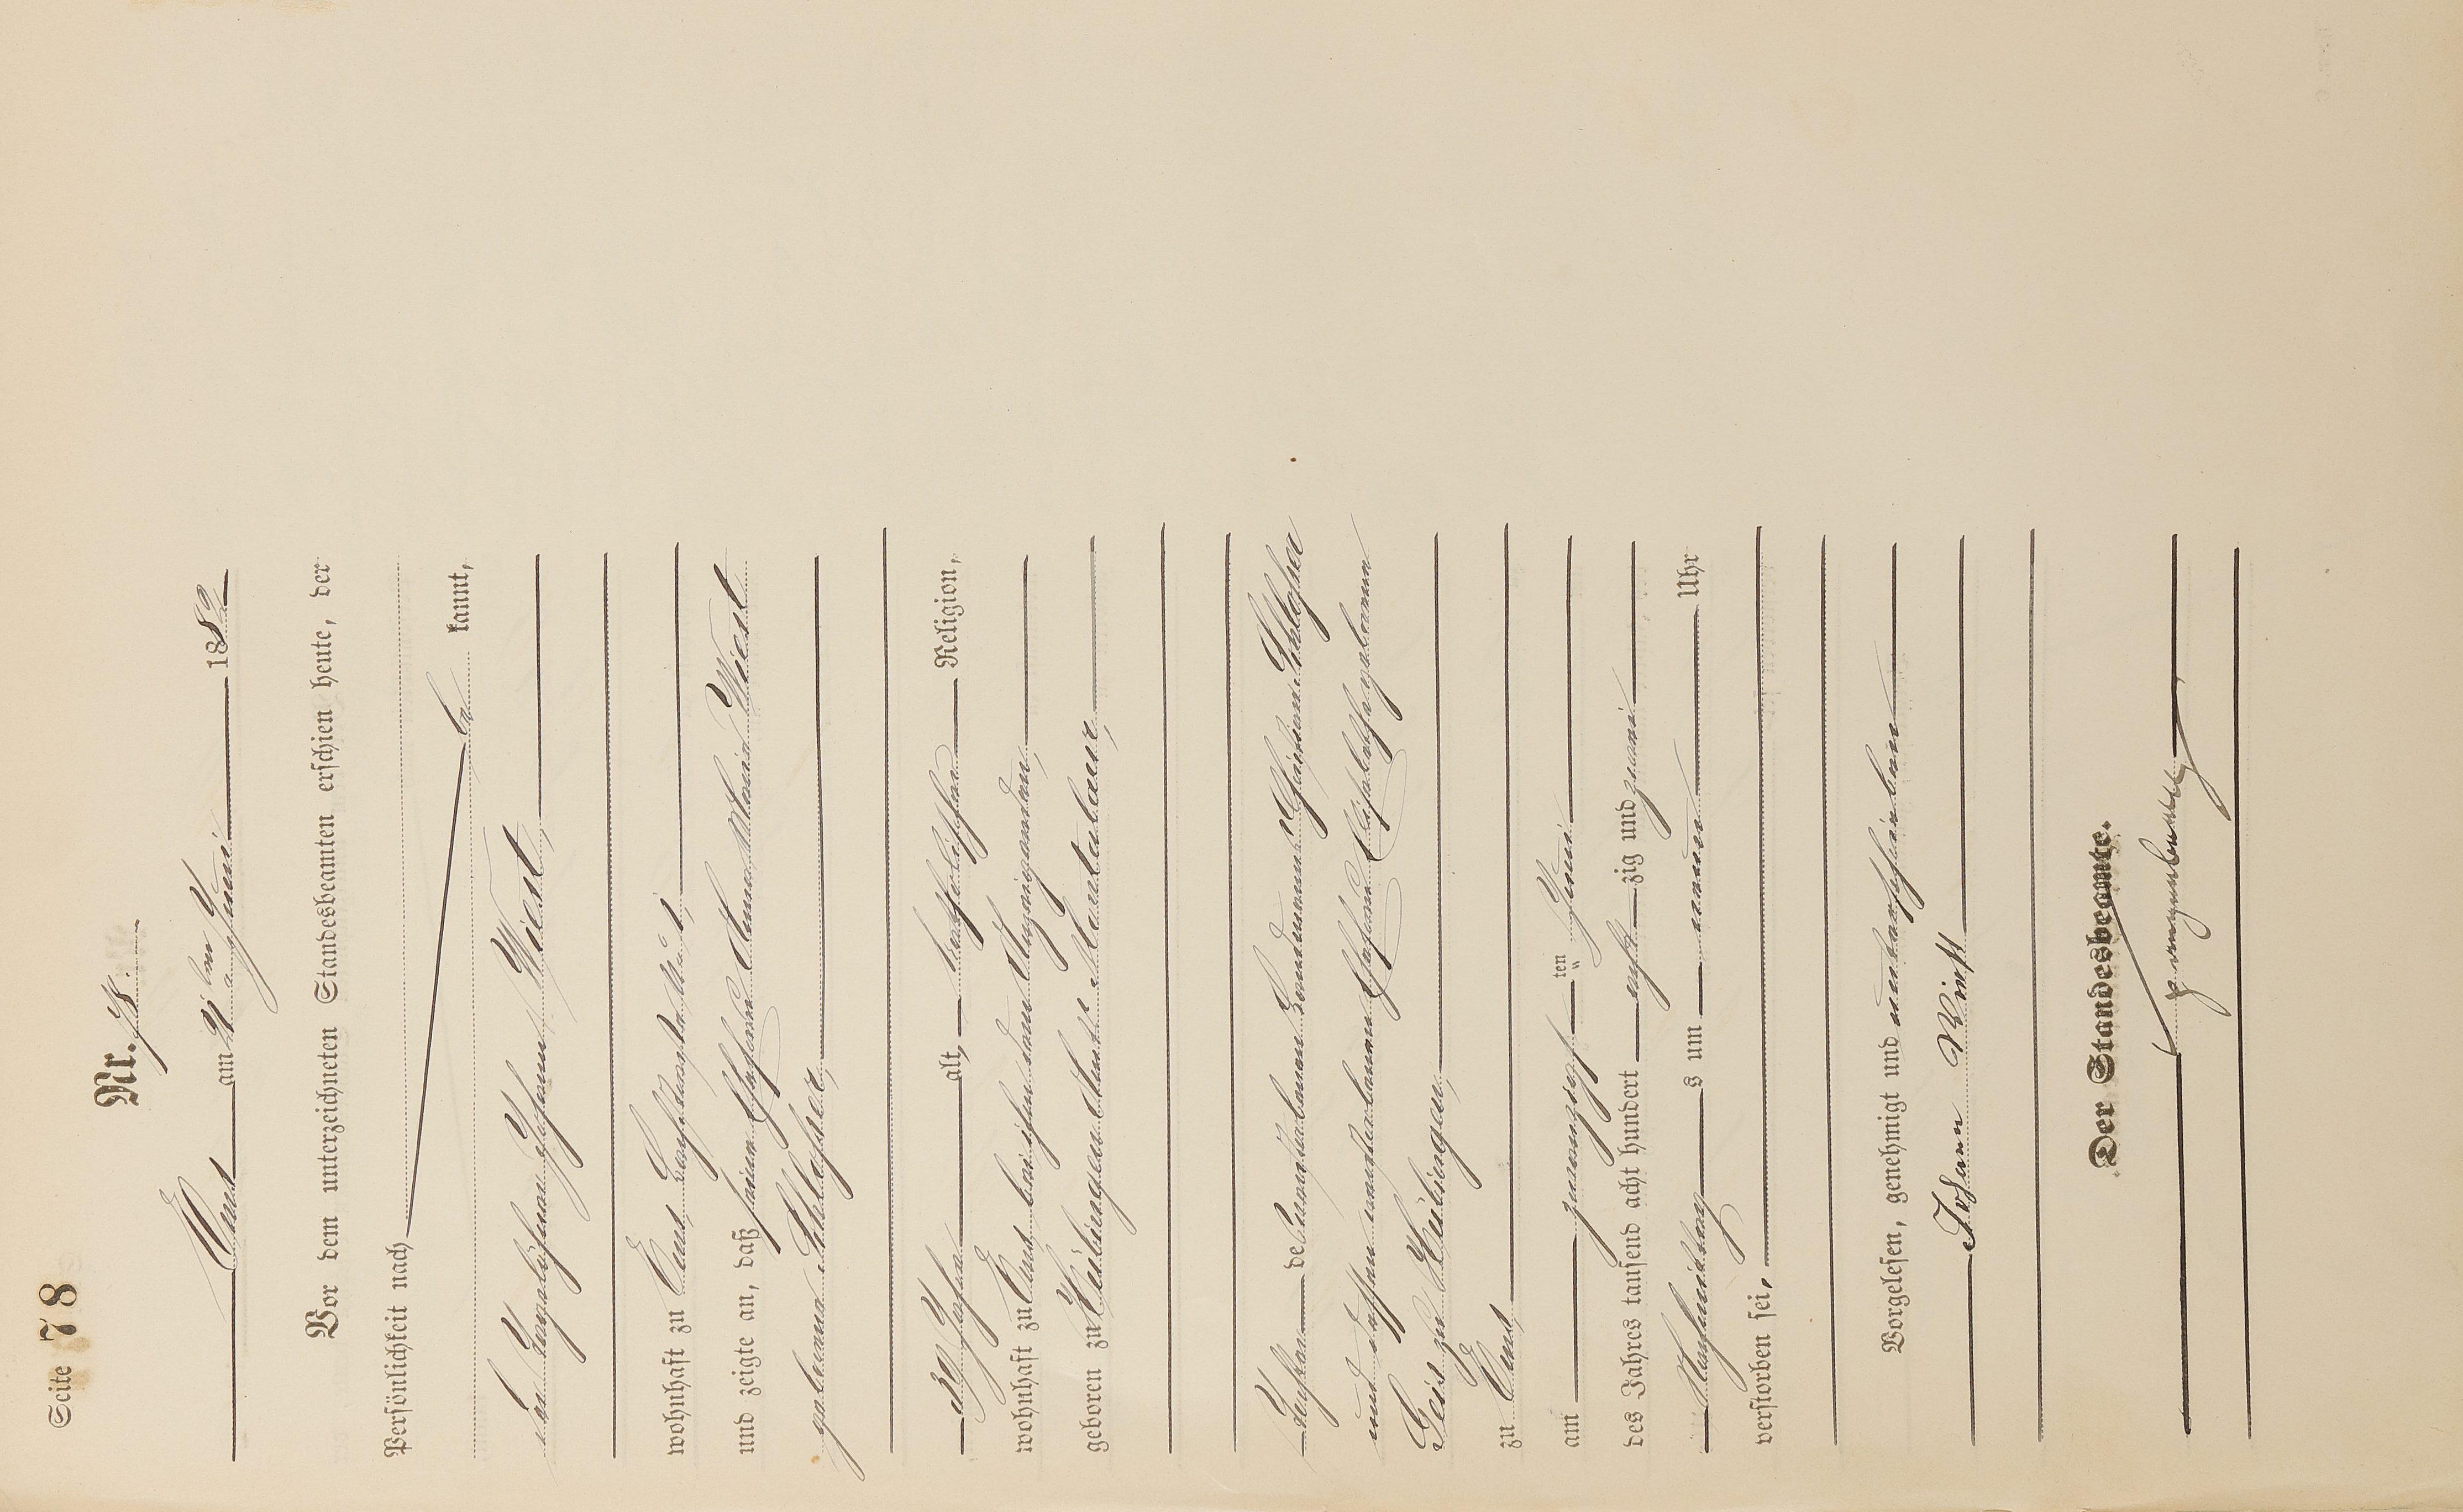 Seite 78
Nr. 78.
Ems am 21ten Juni 1882
Vor dem unterzeichneten Standesbeamten erschien heute, der
Persönlichkeit nach
be kannt,
der Tagelöhner Johann Wiest,
wohnhaft zu Ems,
und zeigte an, daß seine Ehefrau Anna Maria Wiest
geborene Schlosser,
39 Jahre alt, katholischer Religion,
wohnhaft zu Ems bei ihrem Ehemann,
geboren zu Heilingen Amts Montabaur,
Tochter de s verstorbenen Landmanns Schlosser
und dessen verstorbenen Ehefrau Elisabeth geborenen
Geis zu Heilingen,
zu Ems
am zwanzigsten ten Juni
des Jahres tausend acht hundert acht zig und zwei
Nachmittags um neun Uhr
verstorben sei,
Vorgelesen, genehmigt und unterschrieben
Johann Wiest
Der Standesbeamte.